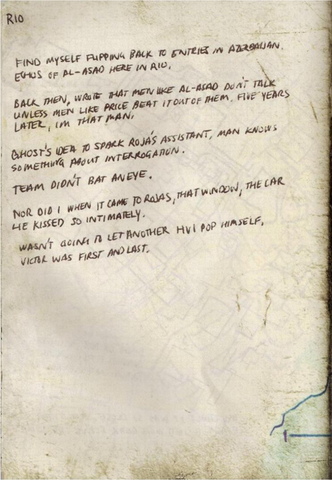 RIO
FIND MYSELF FLIPPING BACK TO ENTRIES IN AZERBAIJAN.
ECHOS OF AL-ASAD HERE IN RIO.
BACK THEN, WROTE THAT MEN LIKE AL-ASAD DON'T TALK
UNLESS MEN LIKE PRICE BEAT IT OUT OF THEM. FIVE YEARS
LATER, I'M THAT MAN.
GHOST'S IDEA TO SPARK ROJA'S ASSISTANT, MAN KNOWS
SOMETHING ABOUT INTERROGATION.
TEAM DIDN'T BAT AN EYE.
NOR DID I WHEN IT CAME TO ROJAS, THAT WINDOW, THE CAR
HE KISSED SO INTIMATELY.
WASN'T GOING TO LET ANOTHER HVI POP HIMSELF.
VICTOR WAS FIRST AND LAST.